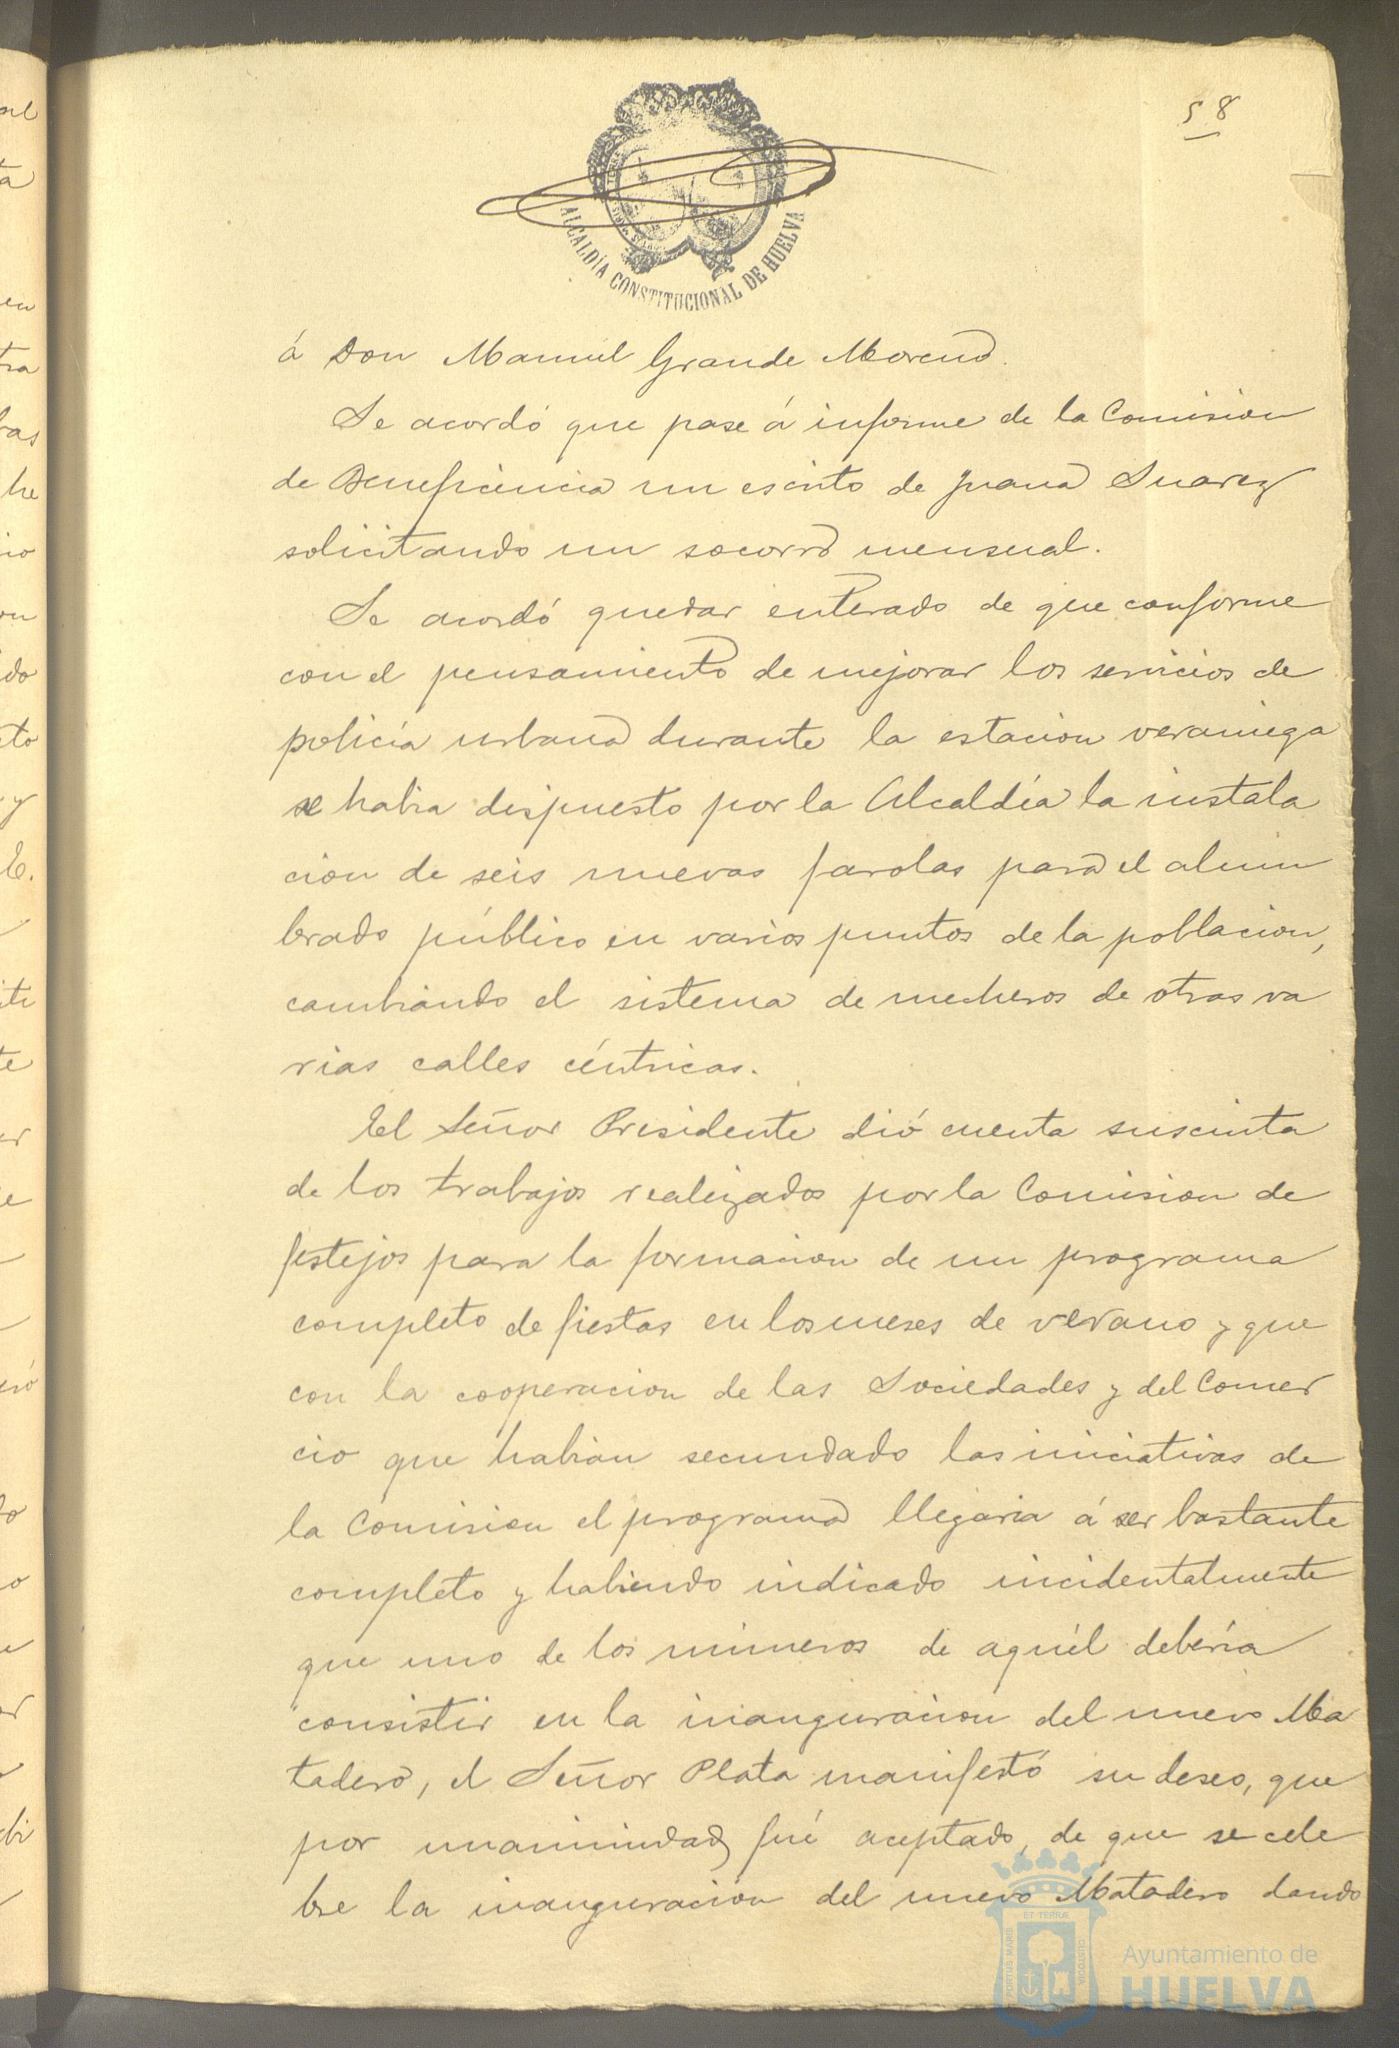 58
ALCALDÍA CONSTITUCIONAL DE HUELVA
á Don Manuel Grande Moreno.
Se acordó que pase á informe de la Comision
de Beneficiencia un escrito de Juana Suarez
solicitando un socorro mensual.
Se acordó quedar enterado de que conforme
con el pensamiento de mejorar los servicios de
policía urbana durante la estacion veraniega
se habia dispuesto por la Alcaldía la instala
cion de seis nuevas farolas para el alum
brado público en varios puntos de la poblacion,
cambiando el sistema de mecheros de otras va
rias calles céntricas.
El Señor Presidente dió cuenta suscinta
de los trabajos realizados por la Comision de
festejos para la formacion de un programa
completo de fiestas en los meses de verano y que
con la cooperacion de las Sociedades y del Comer
cio que habian secundado las iniciativas de
la Comision el programa llegaria á ser bastante
completo y habiendo indicado incidentalmente
que uno de los números de aquél debería
consistir en la inauguracion del nuevo Ma
tadero, el Señor Plata manifestó su deseo, que
por unanimidad fué aceptado, de que se cele
bre la inauguracion del nuevo Matadero dando
PORTUS MARIS ET TERRÆ CUSTODIA
Ayuntamiento de
HUELVA